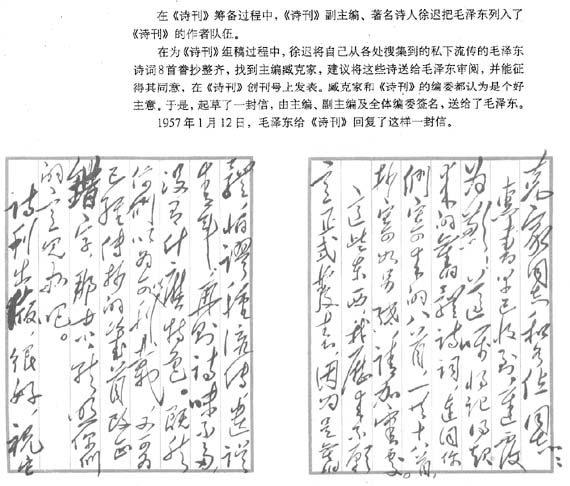 在《诗刊》筹备过程中，《诗刊》副主编、著名诗人徐迟把毛泽东列入了
《诗刊》的作者队伍。
在为《诗刊》组稿过程中，徐迟将自己从各处搜集到的私下流传的毛泽东
诗词8首誊抄整齐，找到主编臧克家，建议将这些诗送给毛泽东审阅，并能征
得其同意，在《诗刊》创刊号上发表。臧克家和《诗刊》的编委都认为是个好
主意。于是，起草了一封信，由主编、副主编及全体编委签名，送给了毛泽东。
1957年1月12日，毛泽东给《诗刊》回复了这样一封信。
克家同志和各位同志：
惠書早已收到，遲復
为歉！遵囑将記得起
来的舊體诗词，连同你
们寄来的八首，一共十八首，
抄寄如另纸，请加審處。
这些东西，我歷来不願
意正式發表，因为是舊
體，怕謬種流傳，遗誤
青年；再则诗味不多，
没有什麽特色。既然
你们以为可以刊載，又可为
已經傳抄的幾首改正
錯字，那末，就照你们
的意见办吧。
诗刊出版，很好，祝它